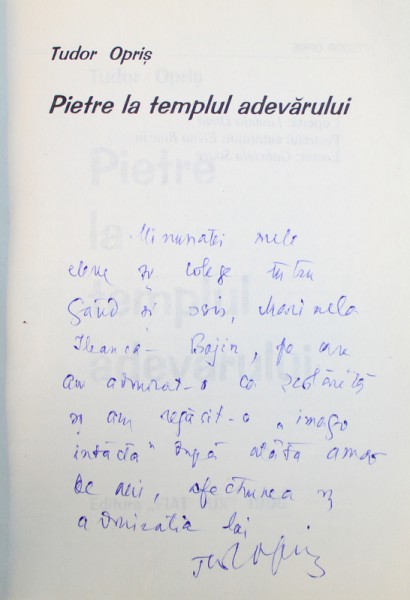 Tudor Opriș
Pietre la templul adevărului
Minunatei mele
eleve și colege întru
gând și scris, Marinela
Theancă - Bojin, pe care
am admirat-o ca școlăriță
și am regăsit-o „imago
intacta" după atâta amar
de ani, afecțiunea și
admirația lui
Tudor Opriș